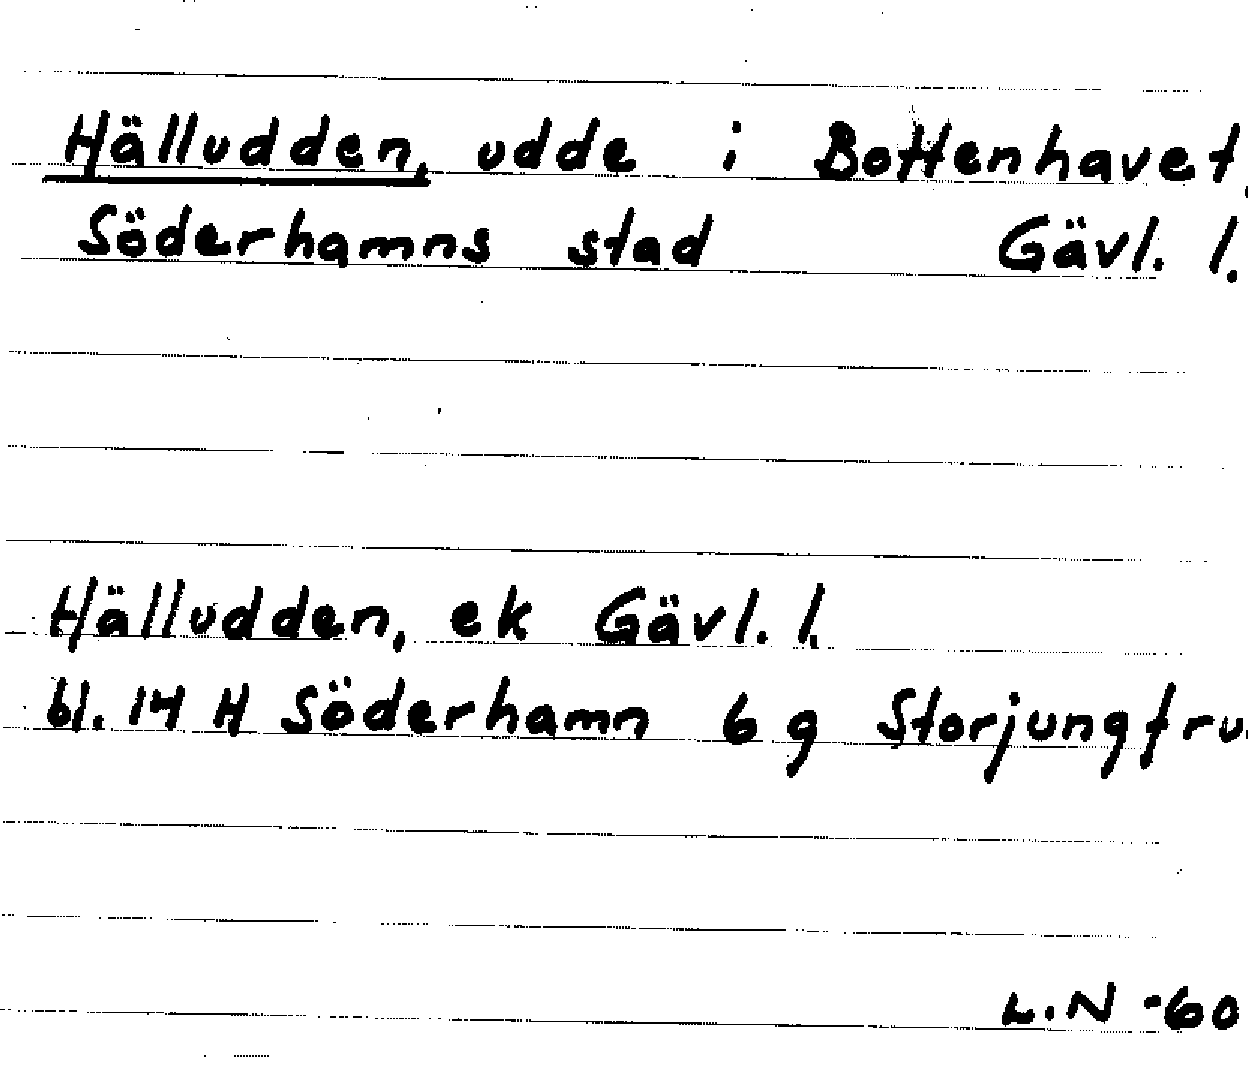 Hälludden, udde i Bottenhavet,
Söderhamns stad Gävl. l.
Hälludden, ek Gävl. l.
bl. 14 H Söderhamn 6 g Storjungfru.
L.N -60